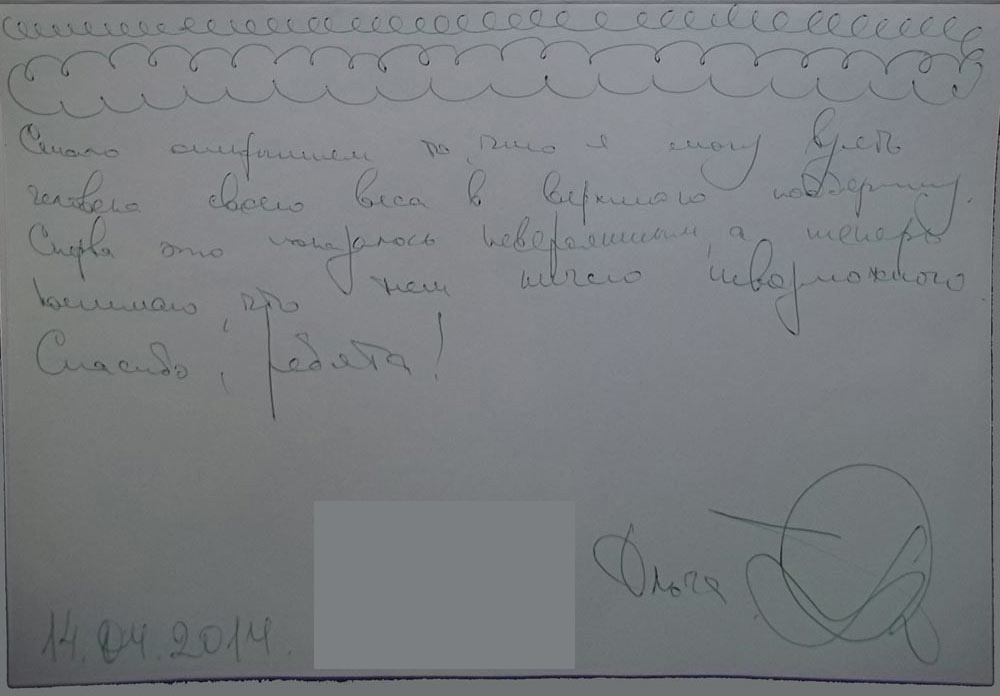 Стало открытием то, что я могу взять
человека своего веса в верхнюю поддержку.
Сперва это казалось невероятным, а теперь
понимаю, что нет ничего невозможного
Спасибо, ребята!
Ольга
14.04.2014.